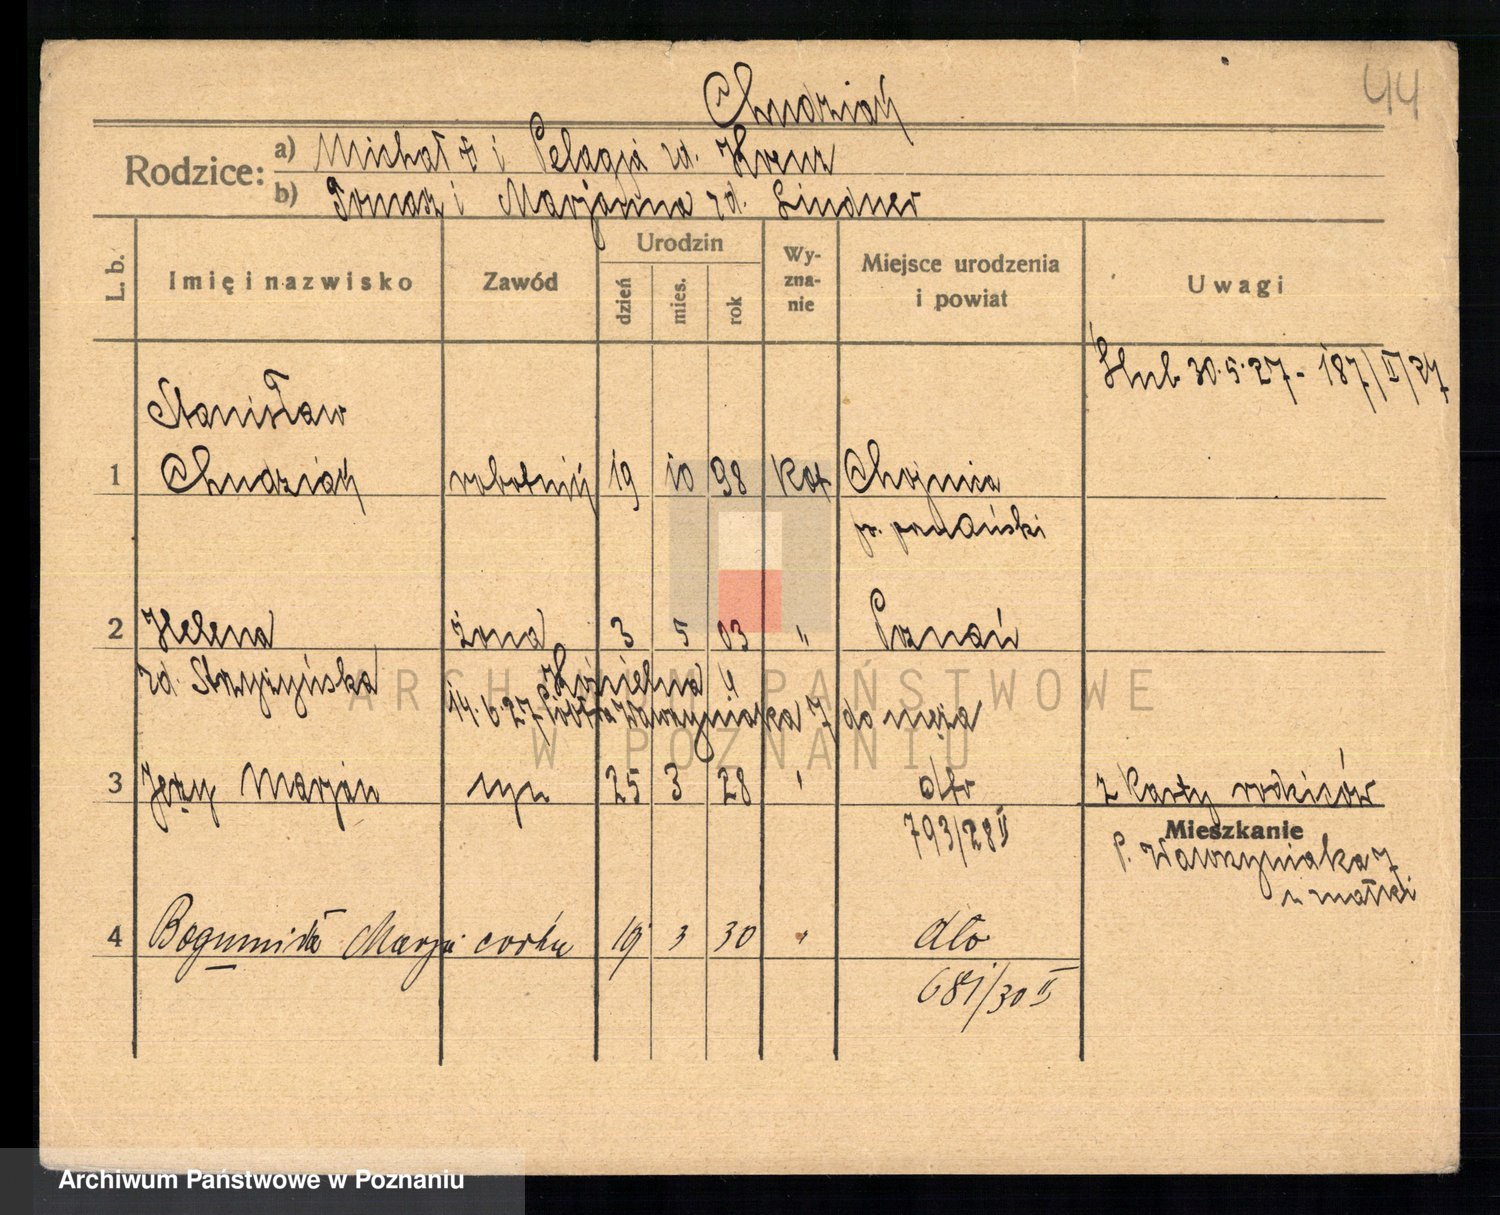 44
Chudziak
Rodzice:
a) Michał i Pelagja rd. Kreuz
b) Tomasz i Marjanna rd. Lindner
L. b.
Imię i nazwisko
Zawód
Urodzin
dzień
mies.
rok
Wy-
zna-
nie
Miejsce urodzenia
i powiat
Uwagi
Ślub 30.5.27 - 187/II/27
Stanisław
1 Chudziak robotnik 19 10 98 kat Chojnica
p. poznański
2 Helena żona 3 5 03 " Poznań
rd. Strzyżyńska Kościelna 4
14.6.27 Piotra Wawrzyniaka 7 do męża
3 Jerzy Marjan syn 25 3 28 " dto z karty rodziców
793/28 II
Mieszkanie
P. Wawrzyniaka 7
u matki
4 Bogumiła Marja córka 19 3 30 " dto
681/30 II
ARCHIWUM PAŃSTWOWE
W POZNANIU
Archiwum Państwowe w Poznaniu